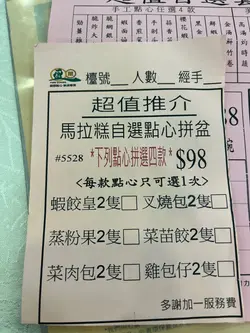 手工點心任選4款
檯號 人數 經手
超值推介
馬拉糕自選點心拼盆
#5528 *下列點心拼選四款* $98
<每款點心只可選1次>
蝦餃皇2隻□ 叉燒包2隻□
蒸粉果2隻□ 菜苗餃2隻□
菜肉包2隻□ 雞包仔2隻□
多謝加一服務費